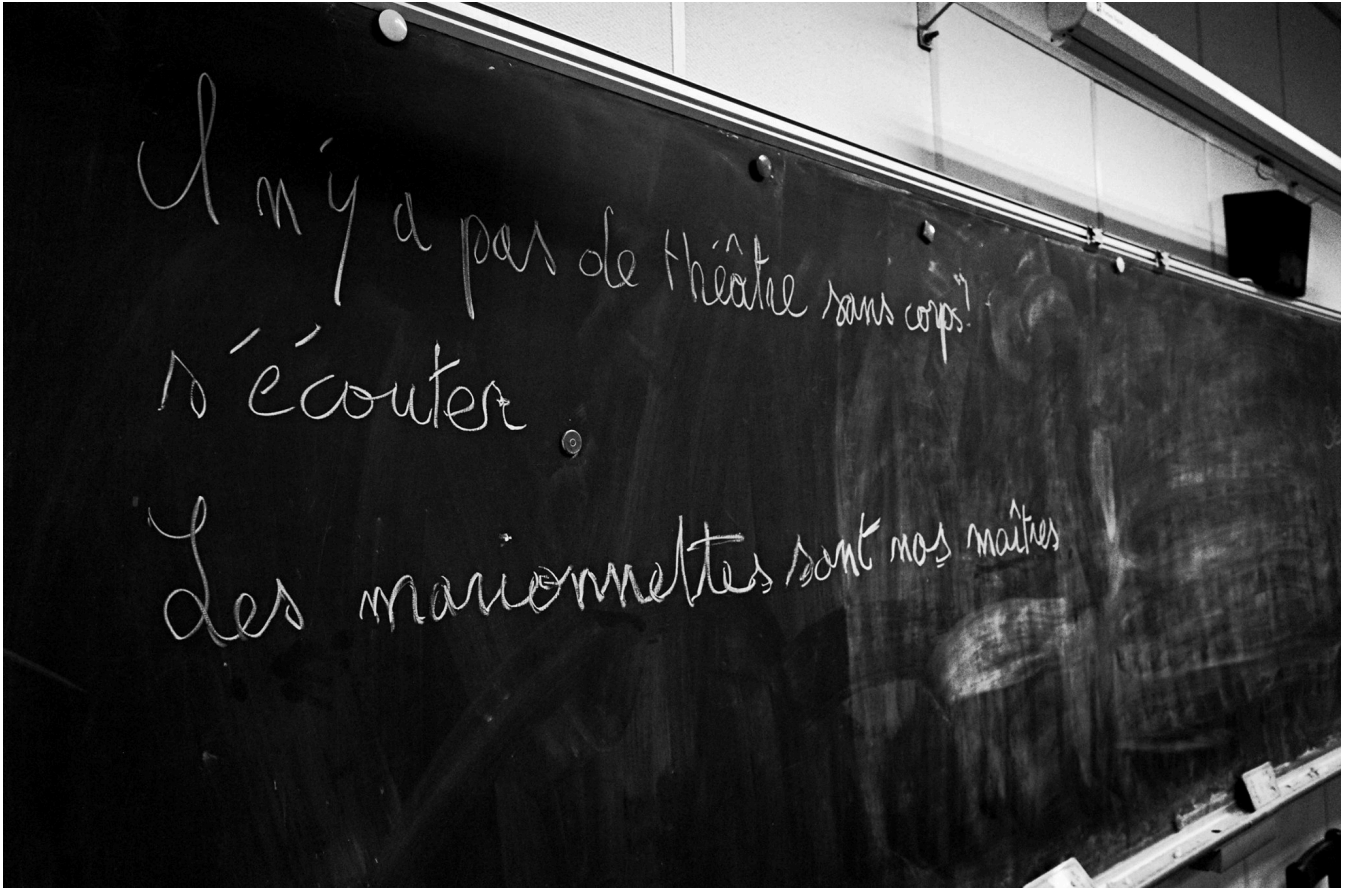 Il n'y a pas de théâtre sans corps!
s'écouter.
Les marionnettes sont nos maîtres